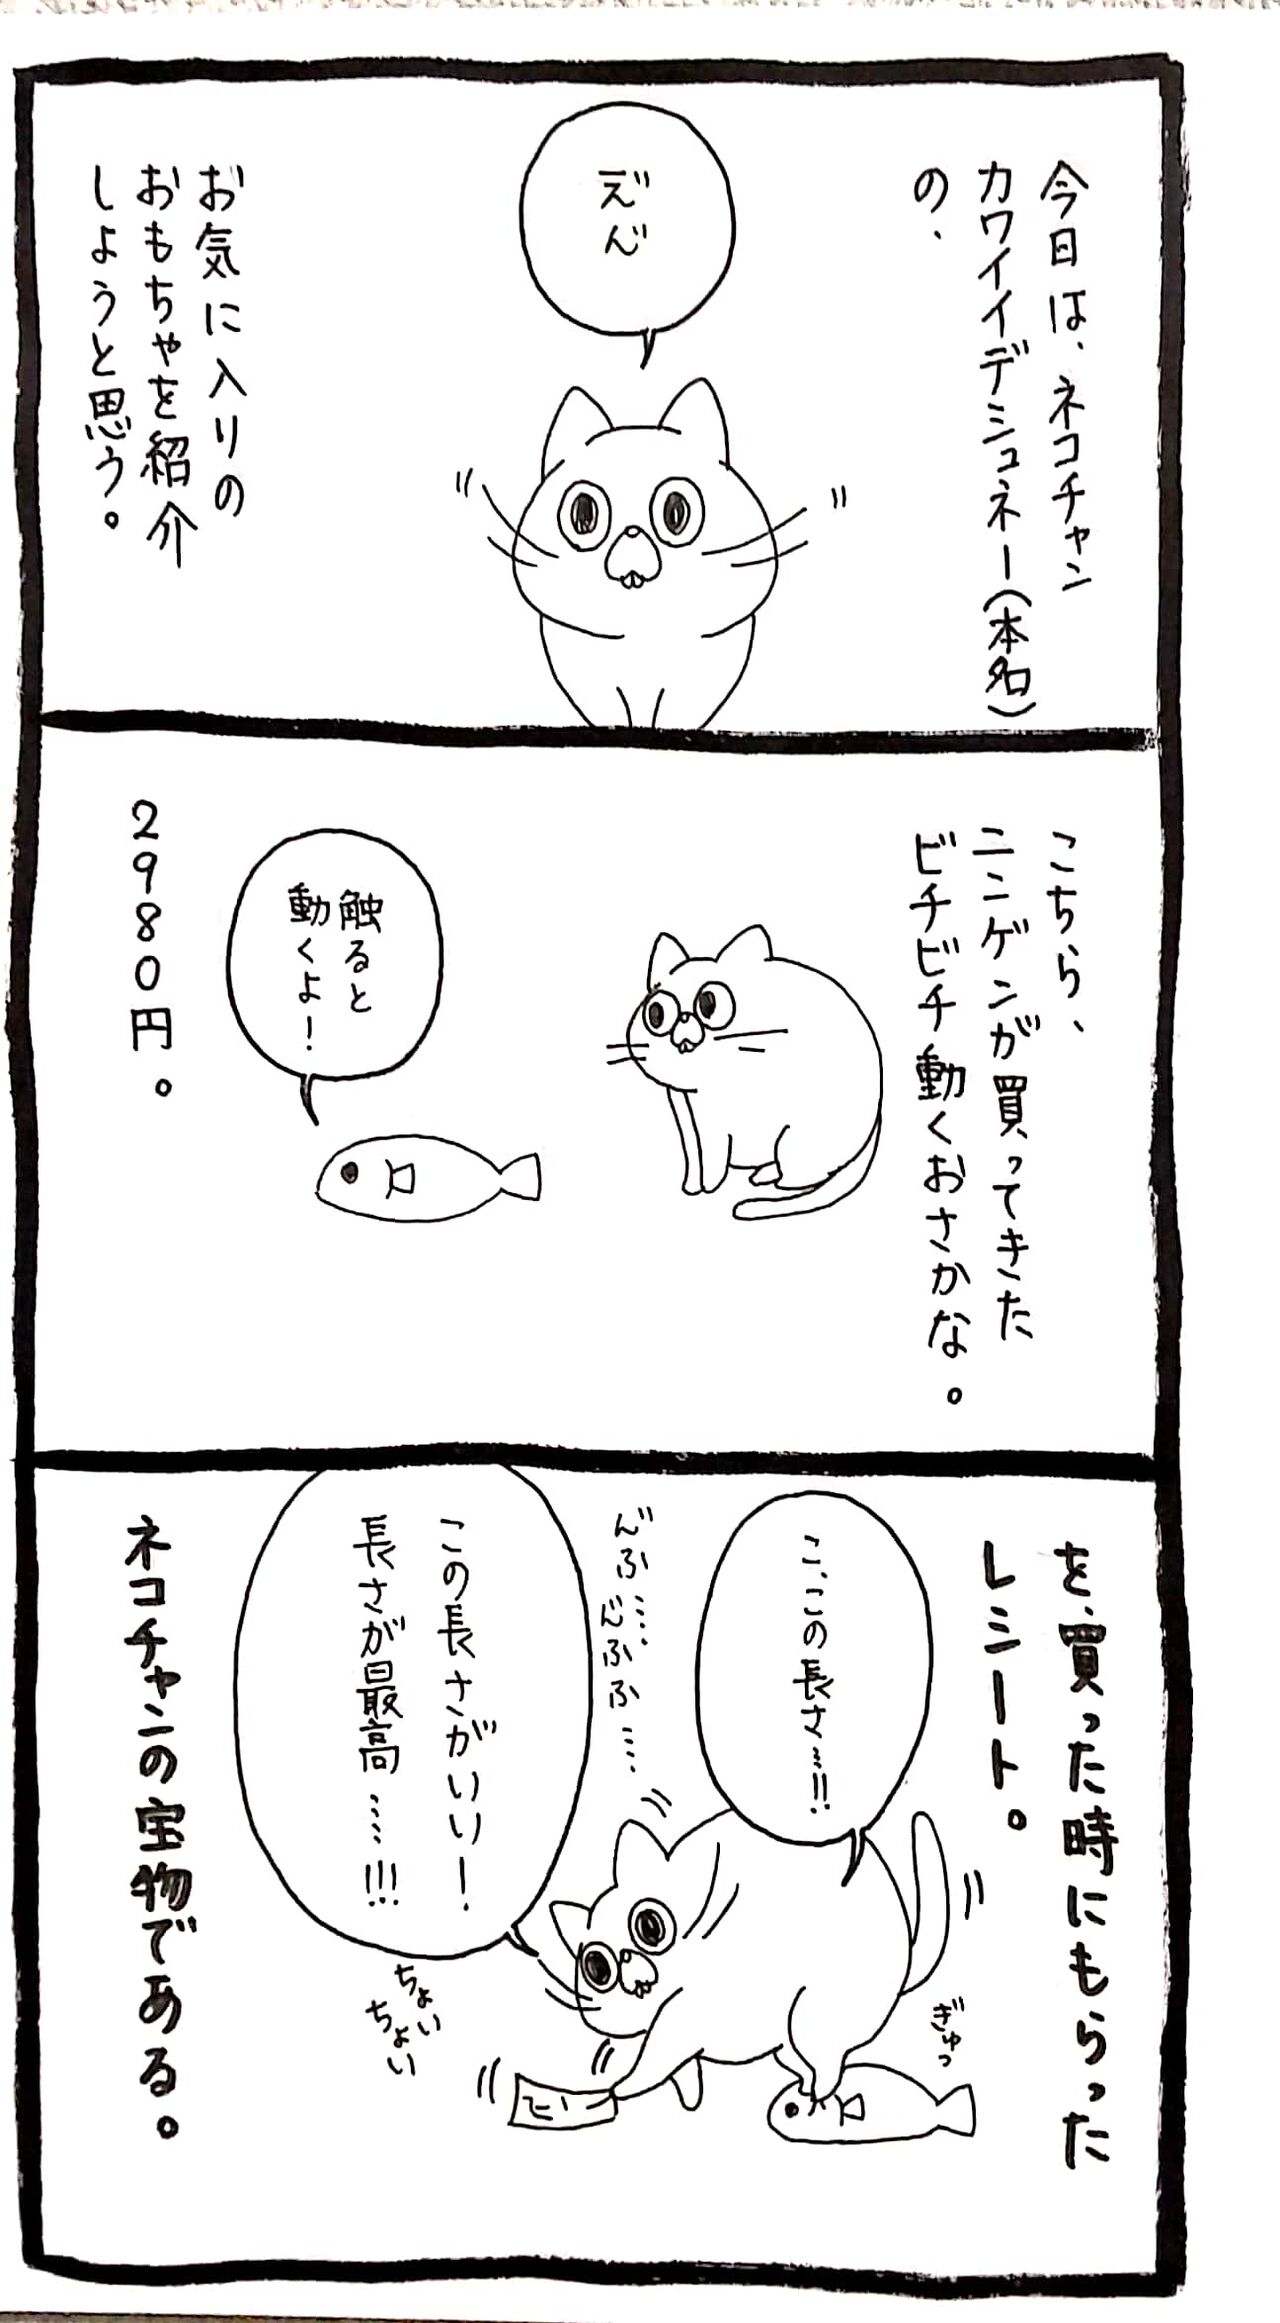 今日は、ネコチャン
カワイイデシュネー(本名)
の、
え゛ん゛
お気に入りの
おもちゃを紹介
しようと思う。
こちら、
ニンゲンが買ってきた
ビチビチ動くおさかな。
触ると
動くよ!
2980円。
を、買った時にもらった
レシート。
こ、この長さ…!!
ん゛ふ…、ん゛ふふふ…
この長さがいい!
長さが最高……!!!
ぎゅっ
ちょい
ちょい
ネコチャンの宝物である。